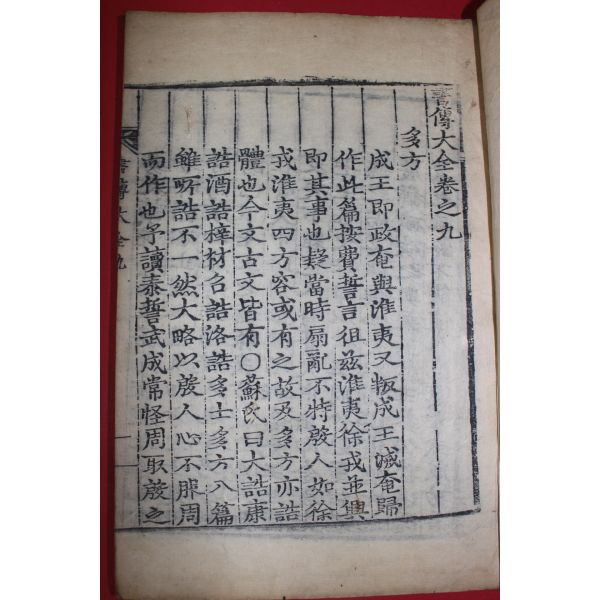 書傳大全卷之九
多方
成王即政奄與淮夷又叛成王滅奄歸
作此篇按費誓言徂玆淮夷徐戎並興
即其事也疑當時扇亂不特殷人如徐
戎淮夷四方容或有之故及多方亦誥
體也今文古文皆有○蘇氏曰大誥康
誥酒誥梓材召誥洛誥多士多方八篇
雖所誥不一然大略以殷人心不服周
而作也予讀泰誓武成常怪周取殷之
書傳大全九
一